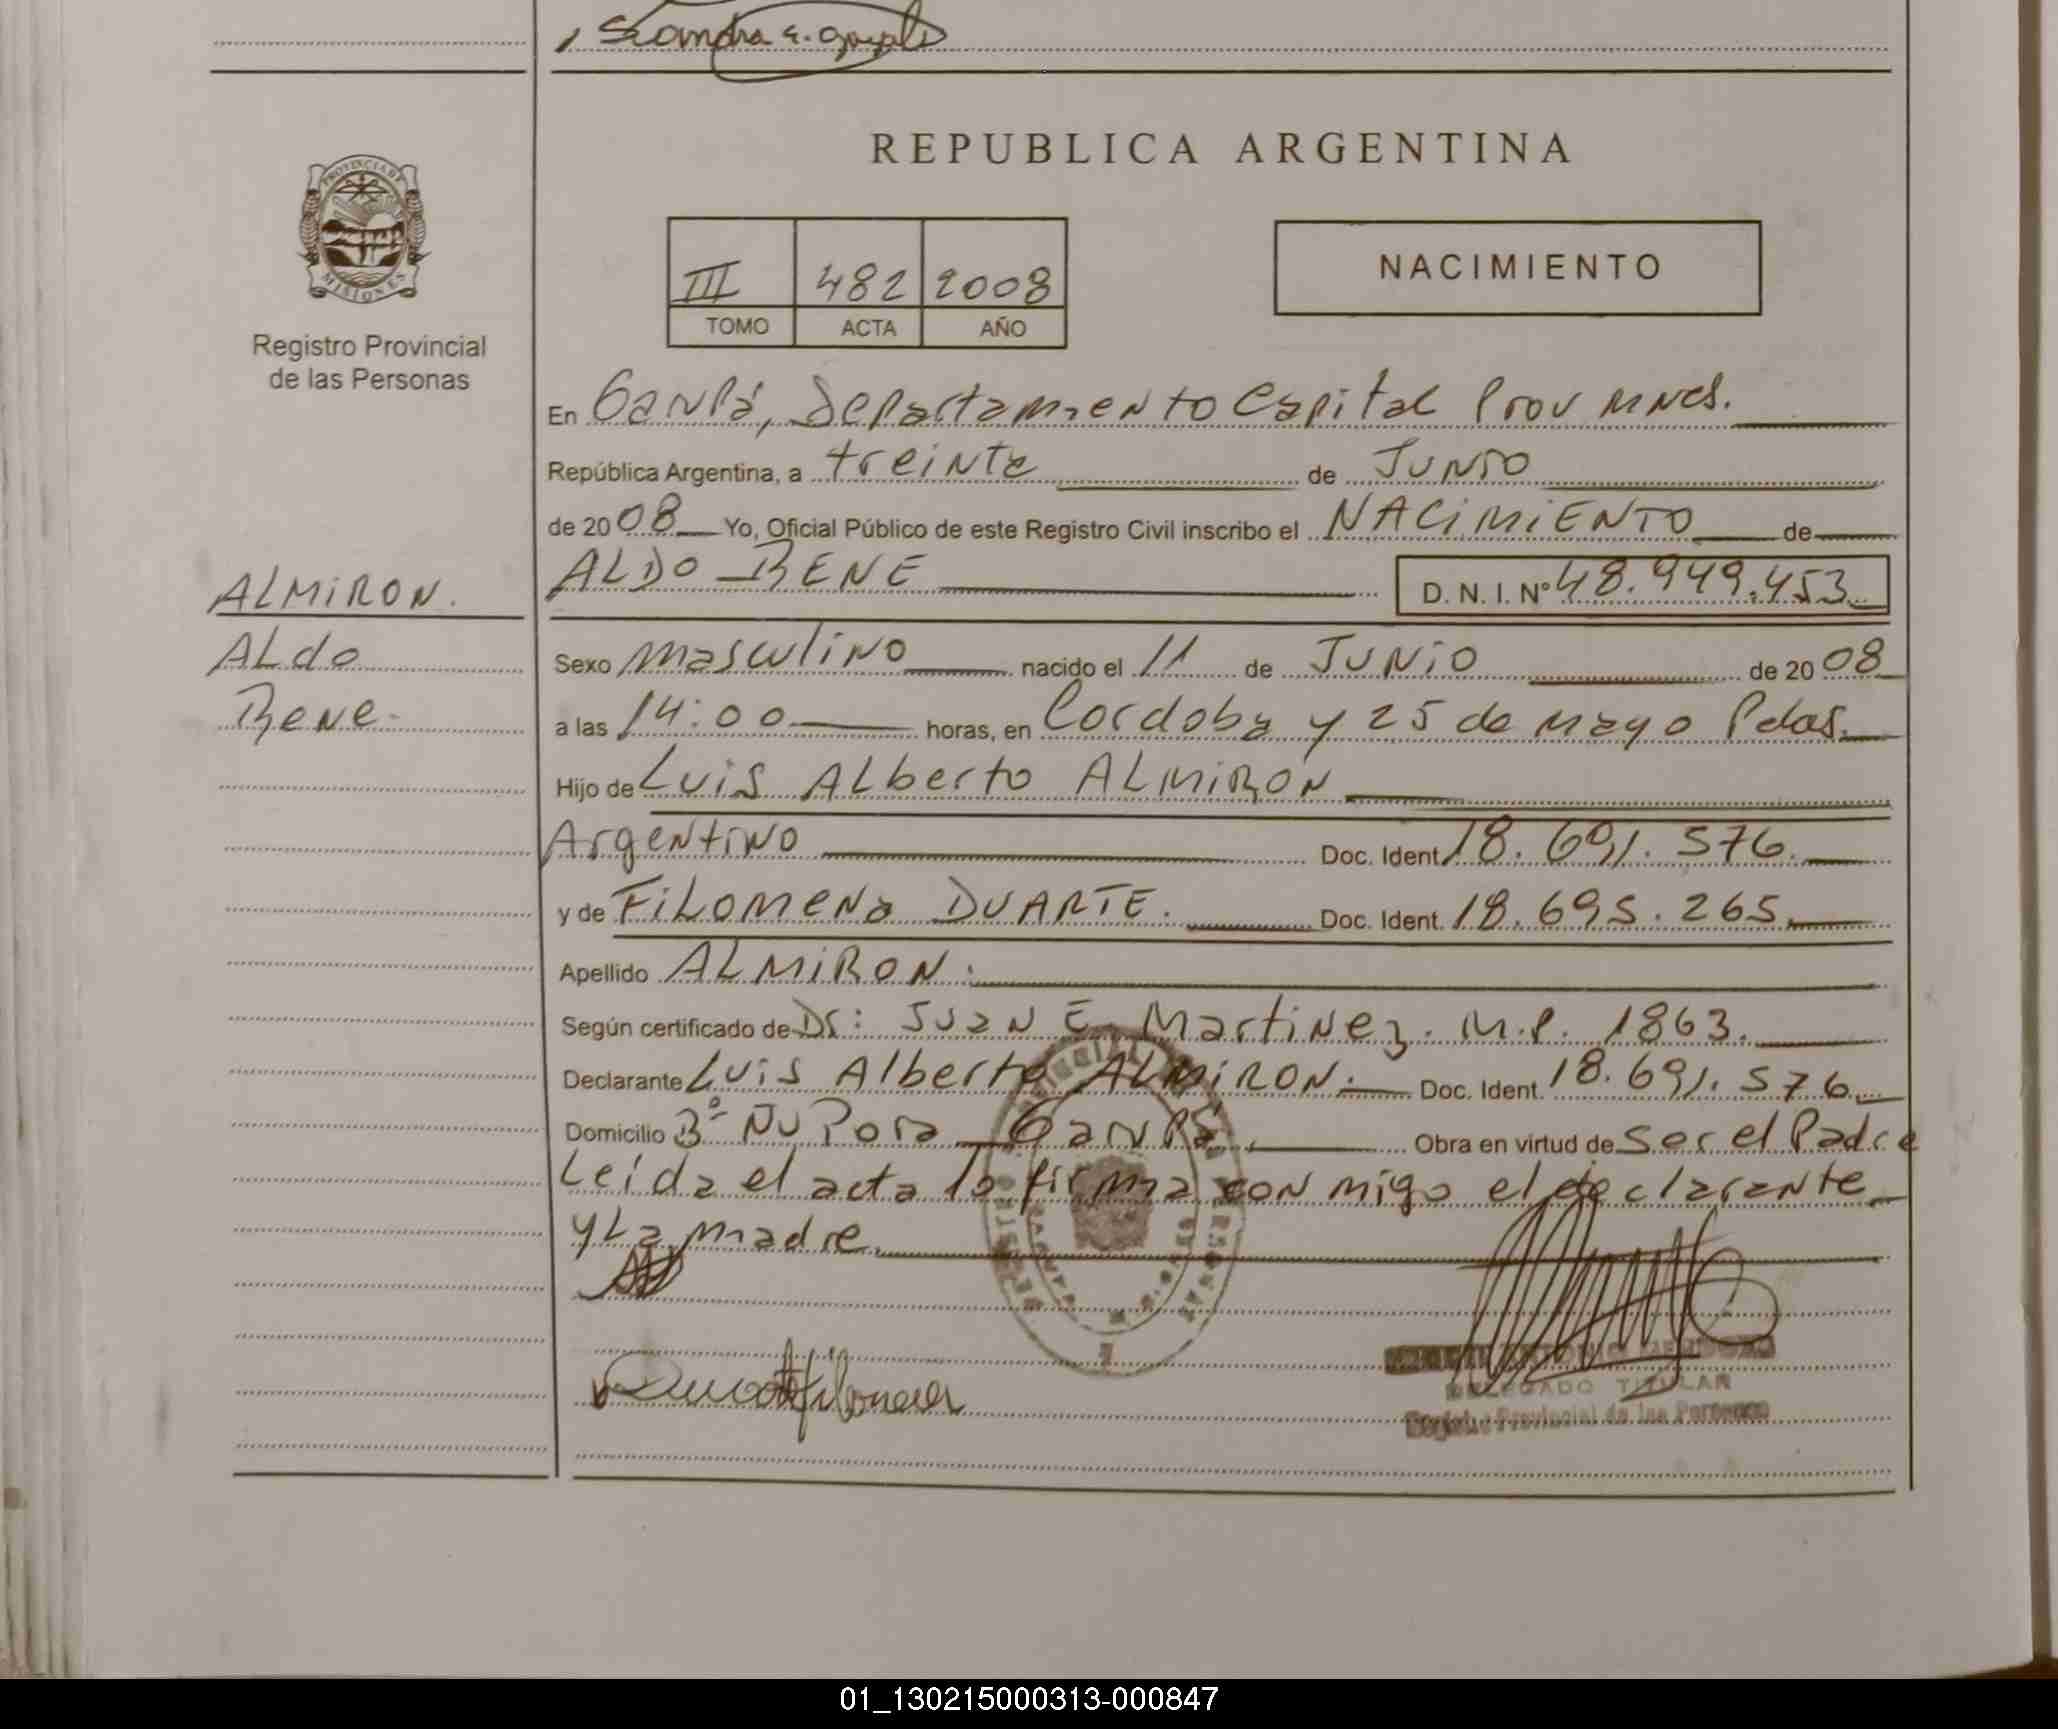 Sandra E. Gonzalez
REPUBLICA ARGENTINA
PROVINCIA DE
MISIONES
Registro Provincial
de las Personas
III 482 2008
TOMO ACTA AÑO
NACIMIENTO
En Garupá, Departamento Capital Prov Mnes.
República Argentina, a treinta de Junio
de 2008 Yo, Oficial Público de este Registro Civil inscribo el NACIMIENTO de
ALDO RENE D. N. I. Nº 48.949.453
ALMIRON.
Aldo
Rene.
Sexo masculino nacido el 11 de JUNIO de 2008
a las 14:00 horas, en Cordoba y 25 de Mayo Pdas.
Hijo de Luis Alberto ALMIRON
Argentino Doc. Ident. 18.691.576.
y de FILOMENA DUARTE. Doc. Ident. 18.695.265.
Apellido ALMIRON.
Según certificado de Dr: Juan E. Martinez. M.P. 1863.
Declarante Luis Alberto ALMIRON. Doc. Ident. 18.691.576
Domicilio Bº Ñu Pora Garupá. Obra en virtud de Ser el Padre
Leida el acta la firma con migo el declarante
y La madre.
Duarte filomena
DELEGADO TITULAR
Registro Provincial de las Personas
01_130215000313-000847